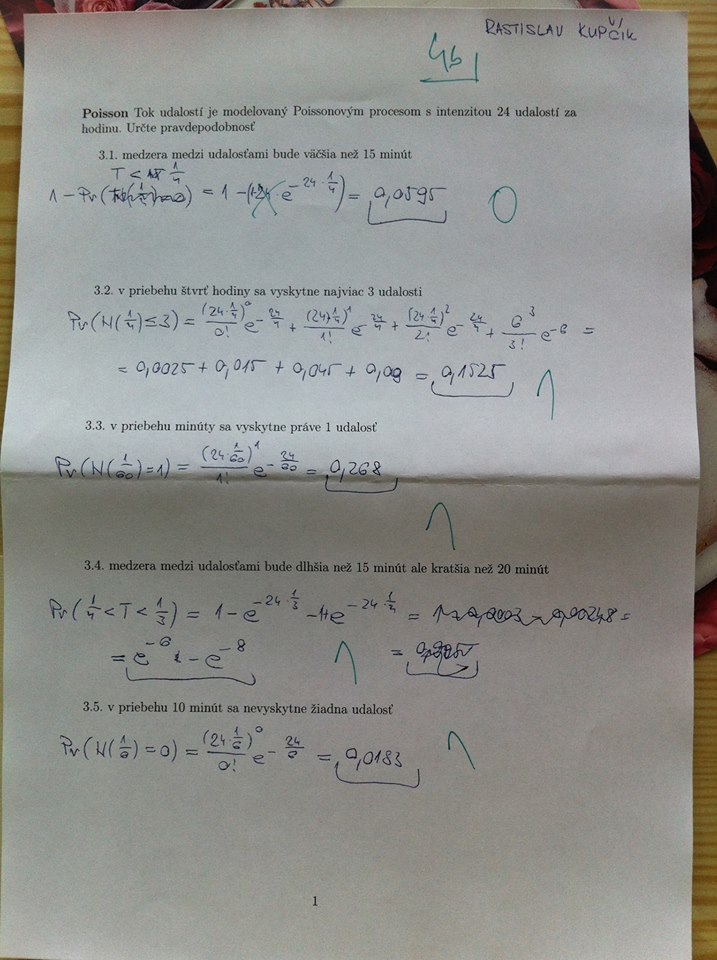 RASTISLAV KUPČÍK
4b
Poisson Tok udalostí je modelovaný Poissonovým procesom s intenzitou 24 udalostí za
hodinu. Určte pravdepodobnosť
3.1. medzera medzi udalosťami bude väčšia než 15 minút
T < 1/4
1 - Pr( ) = 1 - ( e^{-24·1/4}) = 0,0595
0
3.2. v priebehu štvrť hodiny sa vyskytne najviac 3 udalosti
Pr(N(1/4)≤3) = (24·1/4)^0/0! e^{-24/4} + (24·1/4)^1/1! e^{-24/4} + (24·1/4)^2/2! e^{-24/4} + 6^3/3! e^{-6} =
= 0,0025 + 0,015 + 0,045 + 0,09 = 0,1525
1
3.3. v priebehu minúty sa vyskytne práve 1 udalosť
Pr(N(1/60)=1) = (24·1/60)^1/1! e^{-24/60} = 0,268
1
3.4. medzera medzi udalosťami bude dlhšia než 15 minút ale kratšia než 20 minút
Pr(1/4 < T < 1/3) = 1 - e^{-24·1/3} - 1+e^{-24·1/4} =
= e^{-6} - e^{-8}
1
3.5. v priebehu 10 minút sa nevyskytne žiadna udalosť
Pr(N(1/6)=0) = (24·1/6)^0/0! e^{-24/6} = 0,0183
1
1